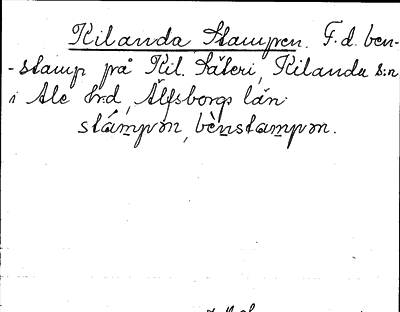 Kilanda Stampen. F.d. ben-
-stamp på Kil. Säteri, Kilanda s:n
i Ale hrd, Älfsborgs län.
stámpən, bènstampən.